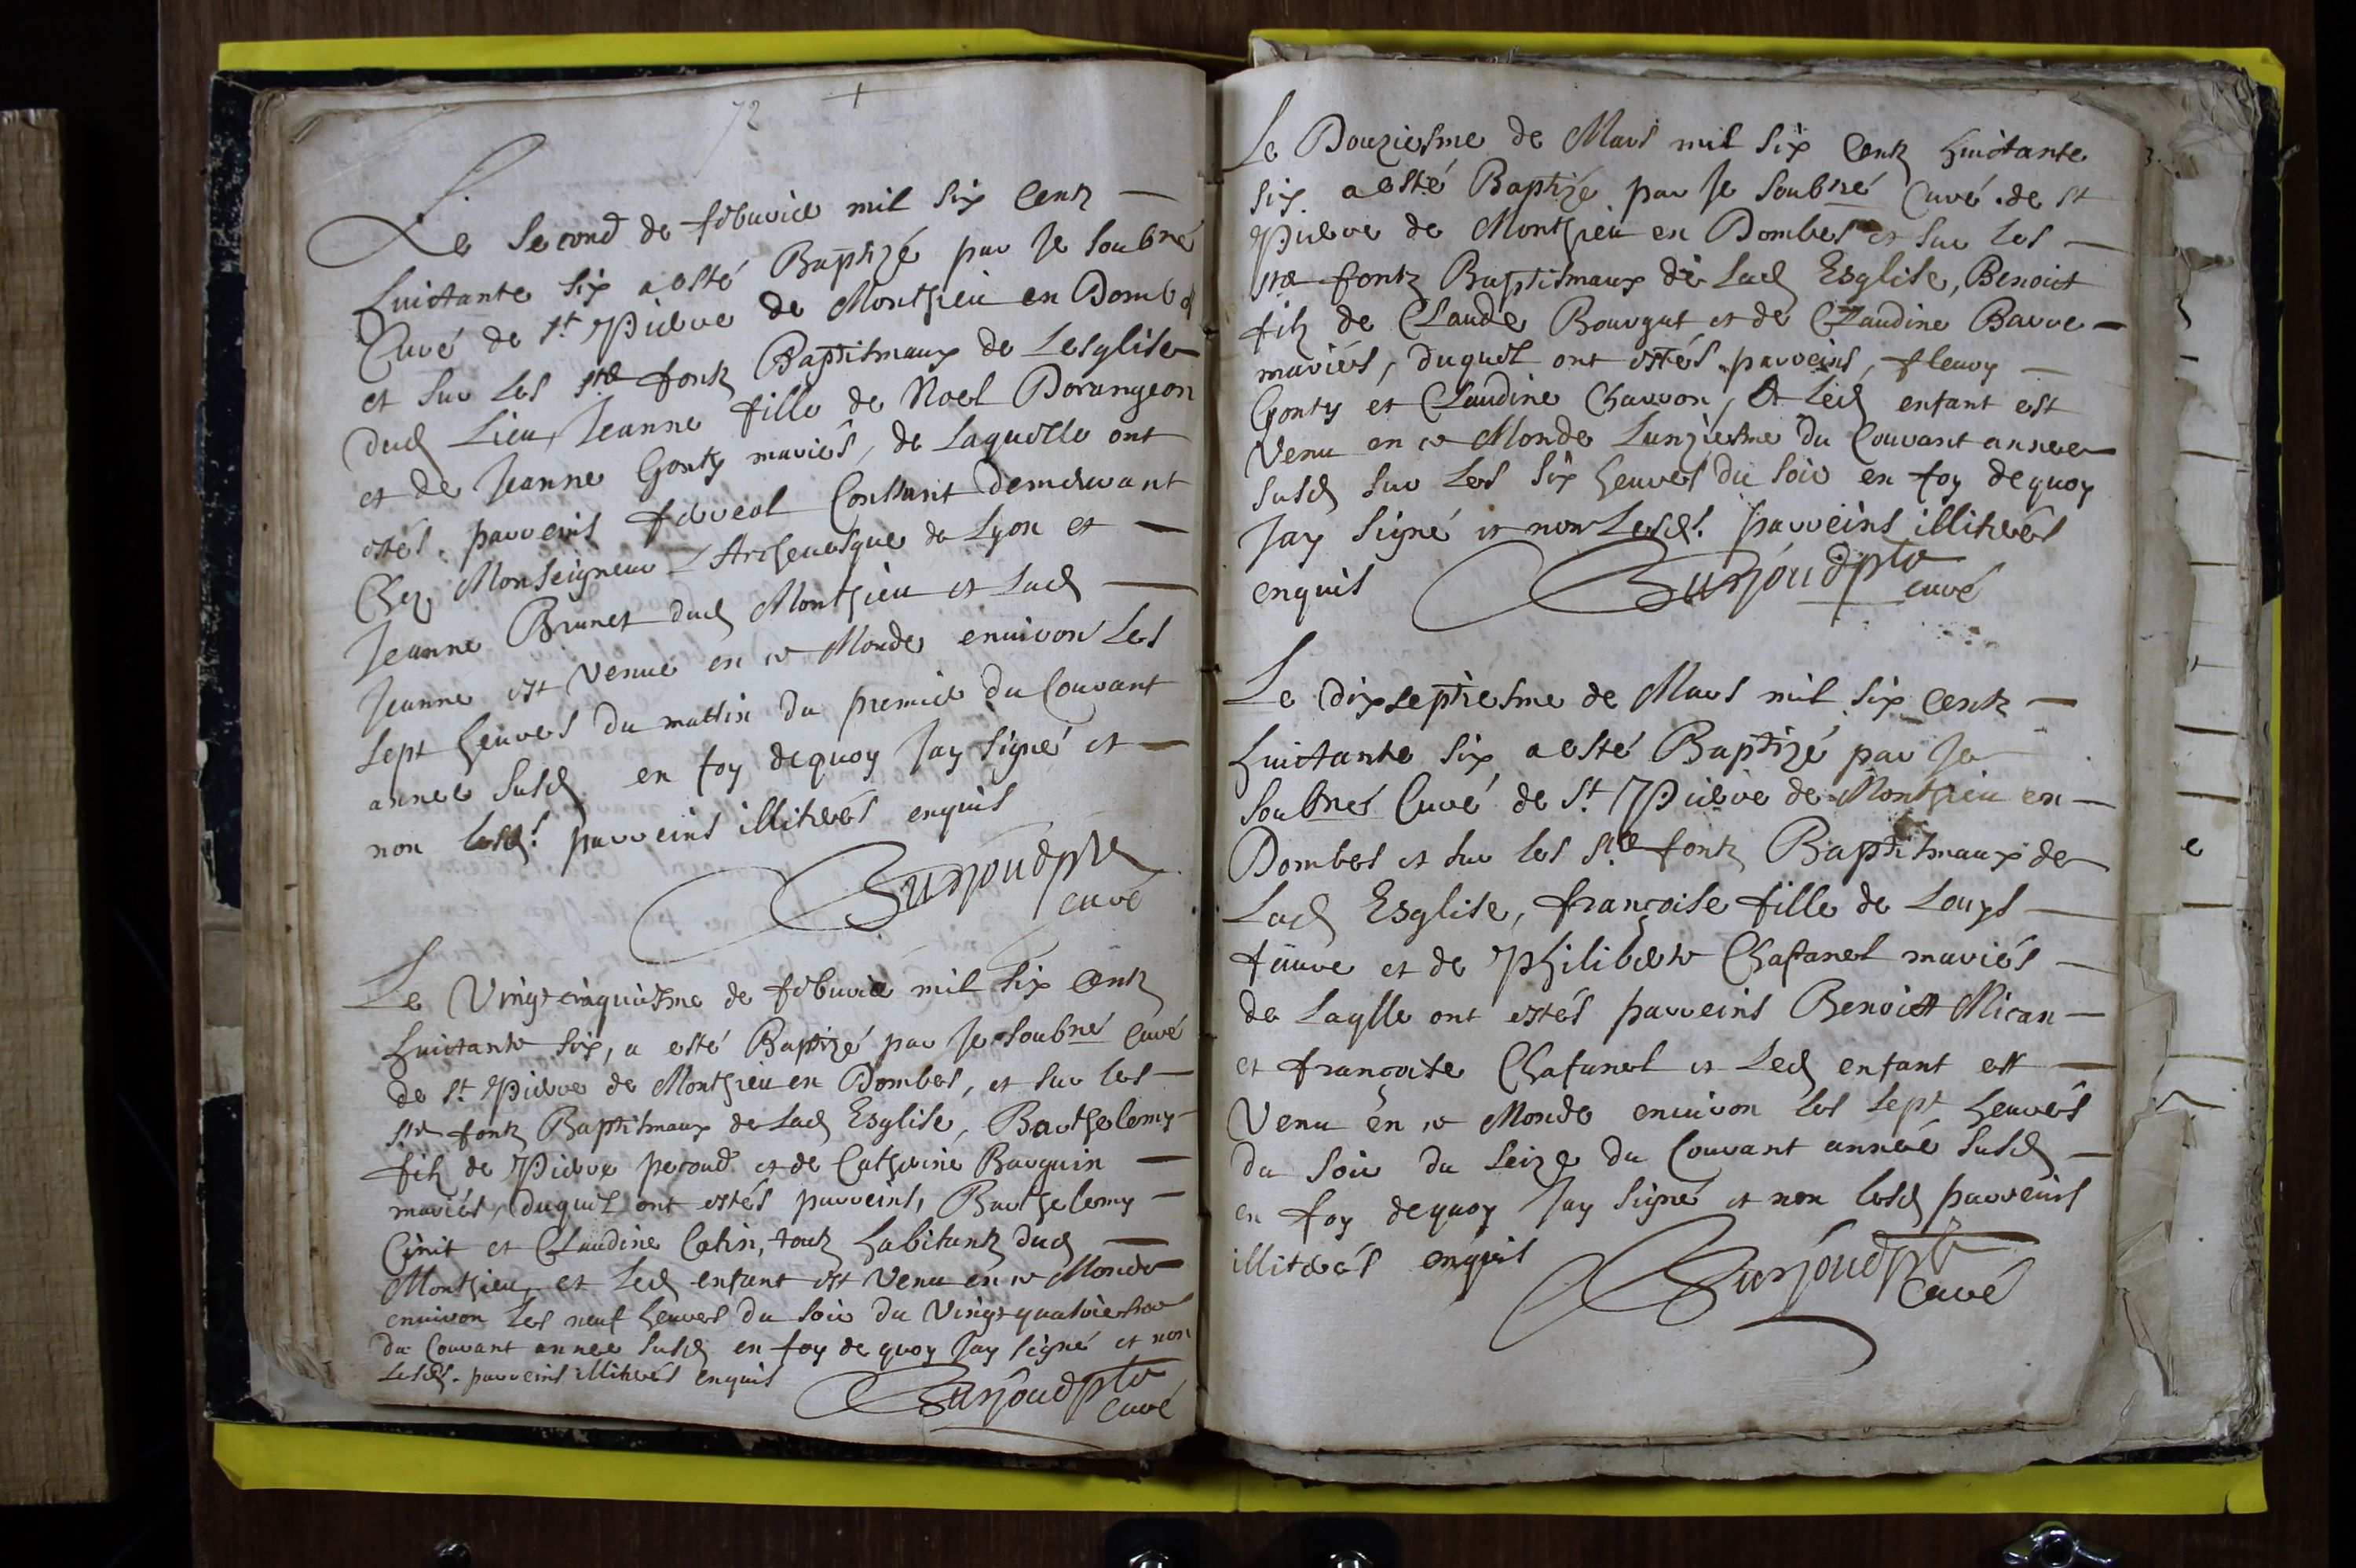 72
Le Second de febvrier mil six centz
huictante six a esté Baptizé par Je soubné
Curé de St. Pierre de Monthieu en Dombes
et sur les stes fontz Baptismaux de Lesglise
dud Lieu, Jeanne fille de Noel Dorangeon
et de Jeanne Gonty mariés, de Laquelle ont
estés parreins ferréol Constant demeurant
Chez Monseigneur L'Archevesque de Lyon et
Jeanne Brunet dud Monthieu et Lad
Jeanne est venue en ce Monde environ Les
sept heures du mattin du premier du Courant
annee susd en foy dequoy Jay signé et
non lesd. parreins illiterés enquis
Surjoud ptre
curé
Le Vingt cinquiesme de febvrier mil six centz
huictante six, a esté Baptizé par Je soubné Curé
de St. Pierre de Monthieu en Dombes, et sur les
stes fontz Baptismaux de Lad Esglise, Barthelemy
filz de Pierre peroud et de Catherine Barquin
mariés, duquel ont estés parreins, Barthelemy
et Claudine Catin, toutz habitantz dud
Monthieu, et Led enfant est Venu en ce Monde
environ les neuf heures du soir du Vingt quatriesme
du Courant annee susd en foy de quoy Jay signé et non
Lesd. parreins illiterés enquis
Surjoud ptre
curé
Le Douziesme de Mars mil six centz huictante
six a esté Baptizé par Je soubné Curé de st
Pierre de Monthieu en Dombes et sur les
stes fontz Baptismaux de Lad Esglise, Benoict
filz de Claude Bourgat et de Claudine Barre
mariés, duquel ont estés parreins, fleury
Gonty et Claudine Charron, Et Led enfant est
Venu en ce Monde Lunziesme du Courant annee
susd sur Les six heures du soir en foy dequoy
Jay signé et non Lesd. parreins illiterés
enquis
Surjoud ptre
curé
Le dixseptiesme de Mars mil six centz
huictante six a esté Baptizé par Je
soubnés Curé de St. Pierre de Monthieu en
Dombes et sur les Ste fontz Baptismaux de
Lad Esglise, françoise fille de Louys
faivre et de Philiberte Chafanel mariés
de Laqlle ont estés parreins Benoitt Mican
et françoise Chafanel et Led enfant est
Venu en ce Monde environ les sept heures
du soir du seize du Courant année susd
en foy dequoy Jay signé et non lesd parreins
illiterés enquis
Surjoud ptre
Curé